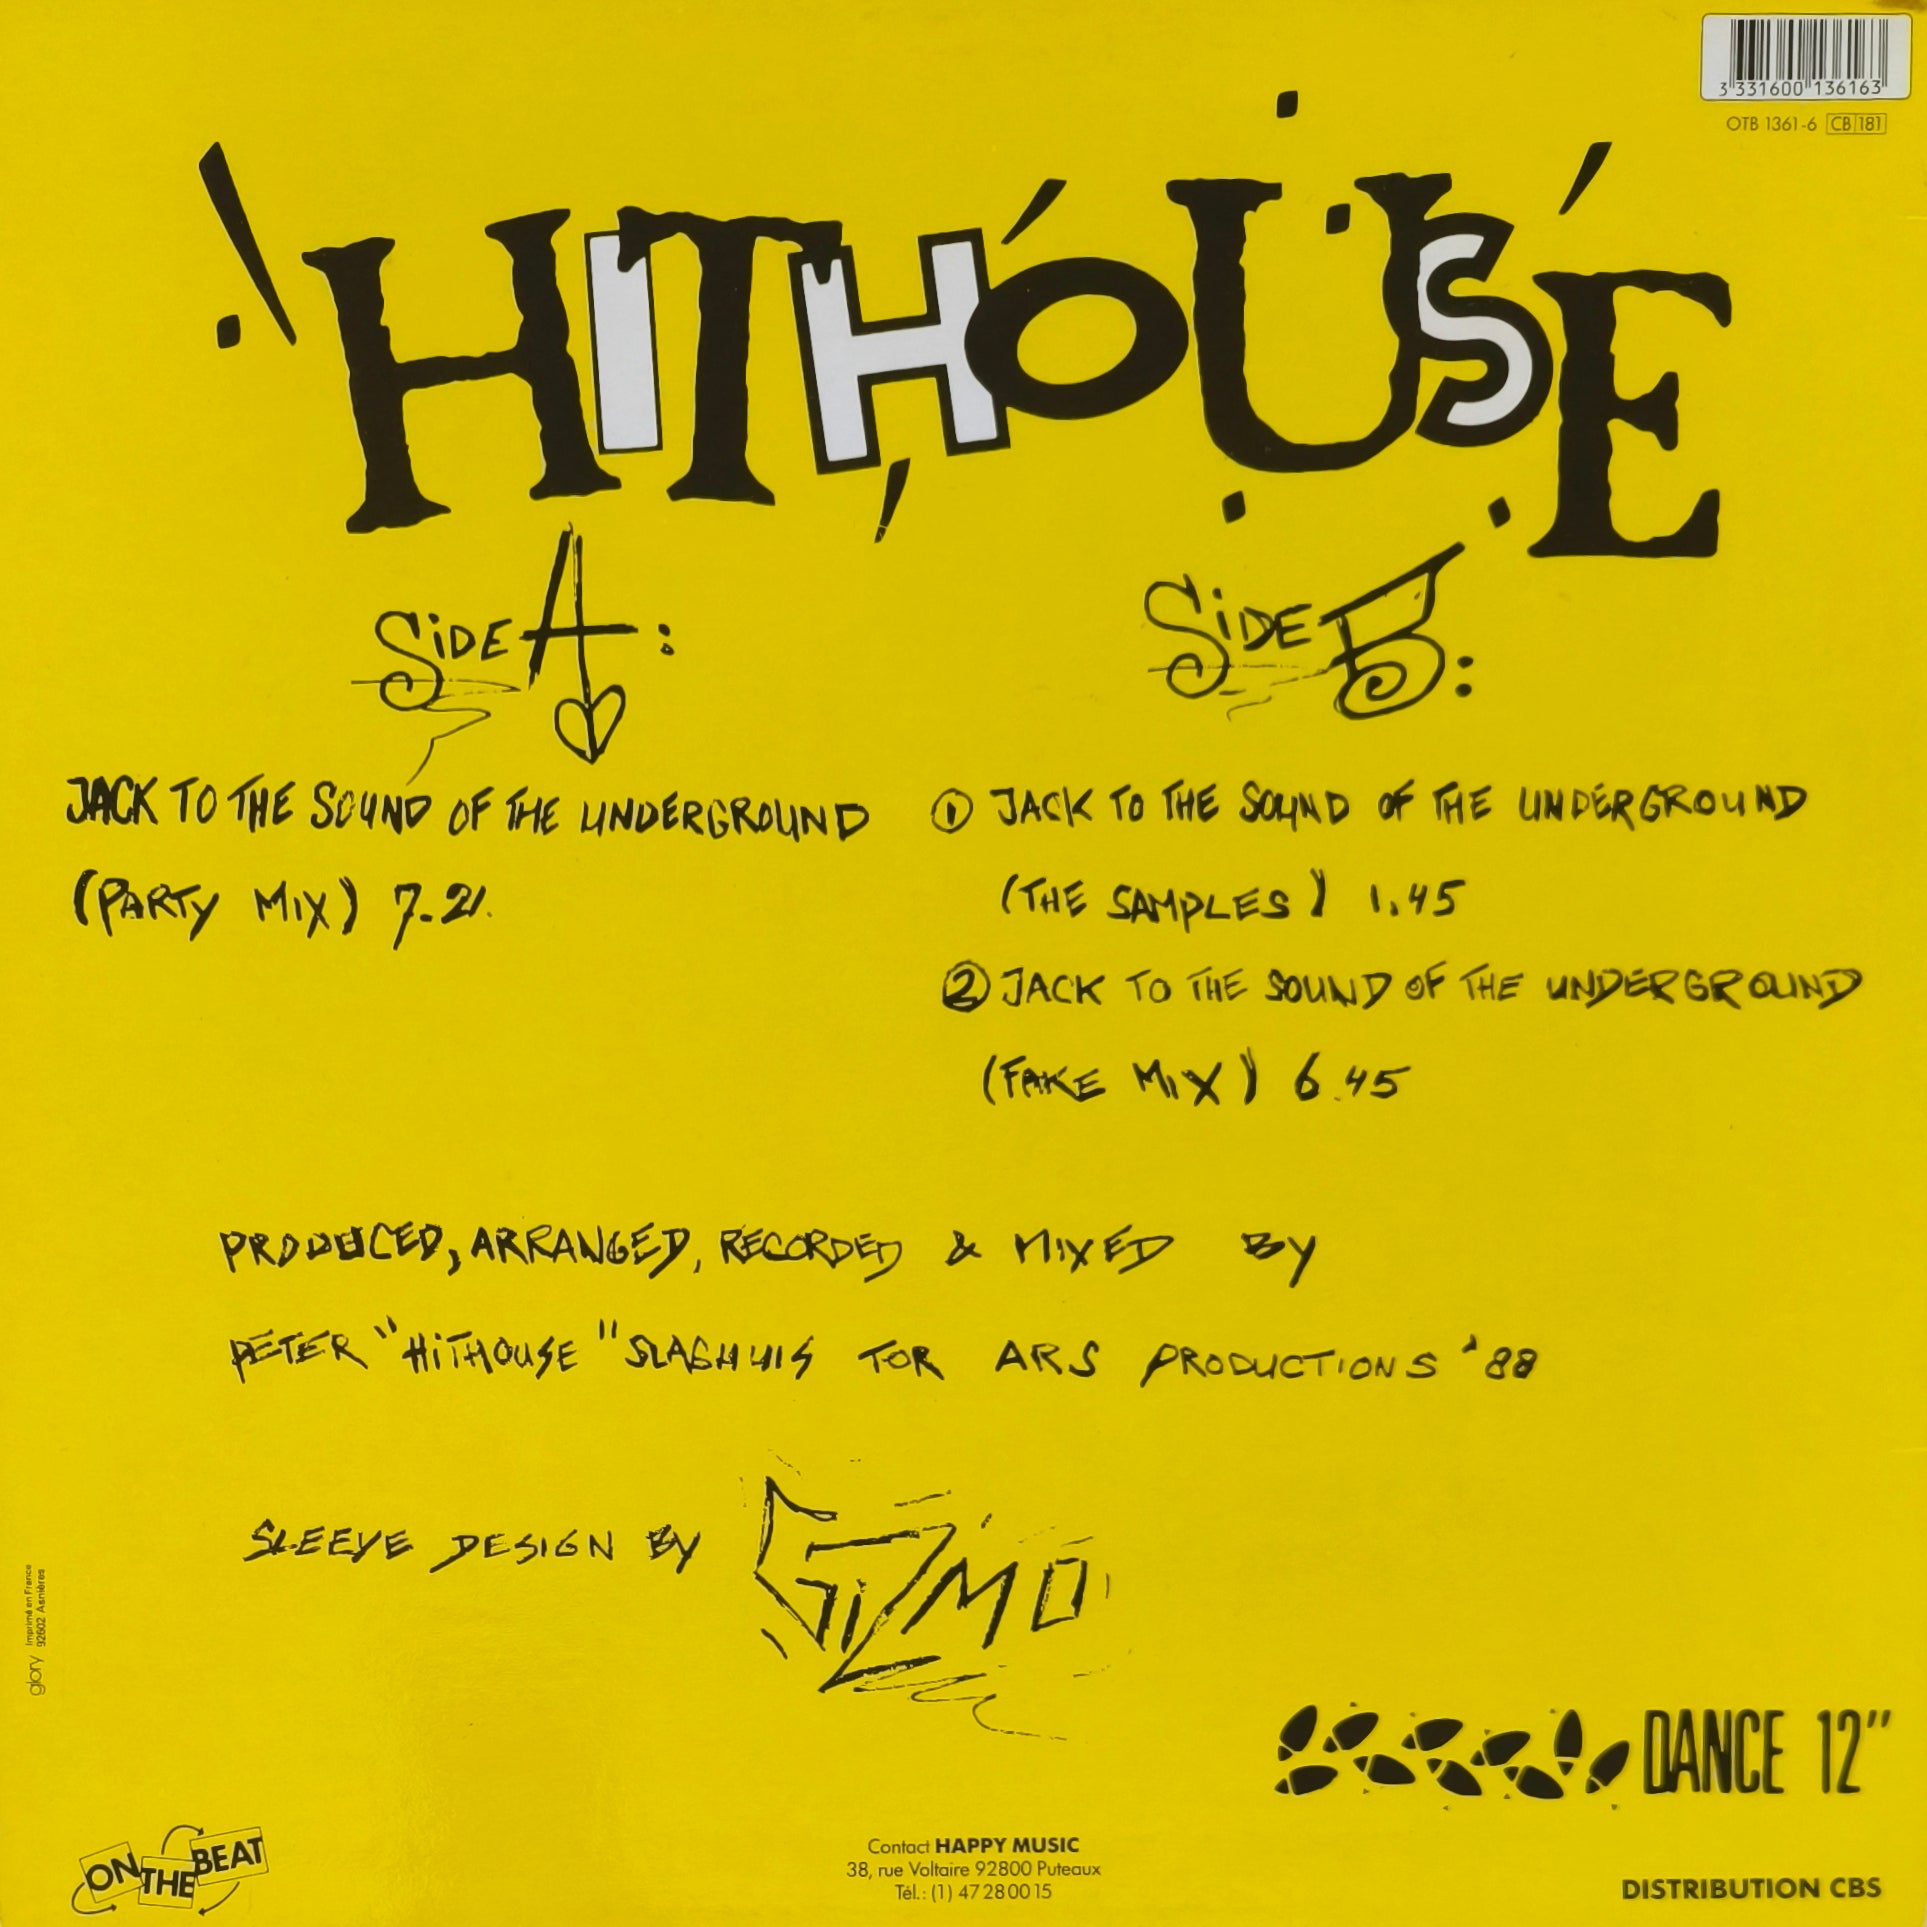 3 331600 136163
OTB 1361-6 CB 181
HITHOUSE
SIDE A:
JACK TO THE SOUND OF THE UNDERGROUND
(PARTY MIX) 7.21
SIDE B:
① JACK TO THE SOUND OF THE UNDERGROUND
(THE SAMPLES) 1.45
② JACK TO THE SOUND OF THE UNDERGROUND
(FAKE MIX) 6.45
PRODUCED, ARRANGED, RECORDED & MIXED BY
PETER "HITHOUSE" SLAGHUIS FOR ARS PRODUCTIONS '88
SLEEVE DESIGN BY GIZMO
glory Imprimé en France
92602 Asnières
DANCE 12"
ON THE BEAT
Contact HAPPY MUSIC
38, rue Voltaire 92800 Puteaux
Tél.: (1) 47280015
DISTRIBUTION CBS